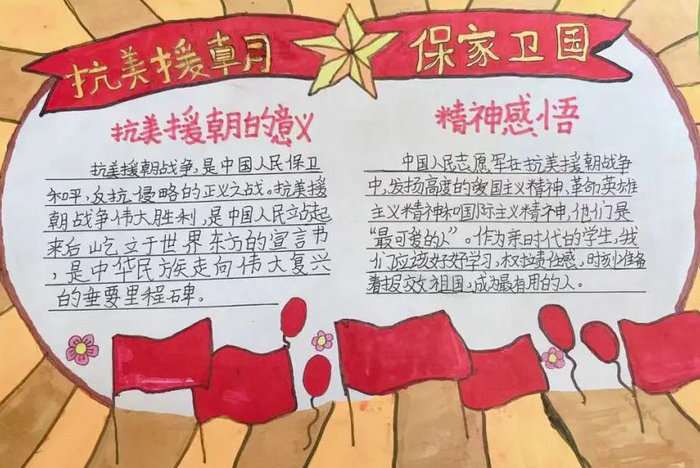 抗美援朝 保家卫国
抗美援朝的意义
抗美援朝战争,是中国人民保卫
和平,反抗侵略的正义之战。抗美援
朝战争伟大胜利,是中国人民站起
来后屹立于世界东方的宣言书
,是中华民族走向伟大复兴
的重要里程碑。
精神感悟
中国人民志愿军在抗美援朝战争
中,发扬高度的爱国主义精神、革命英雄
主义精神和国际主义精神,他们是
“最可爱的人”。作为新时代的学生,我
们应该好好学习,树立责任感,时刻准备
着报效祖国,成为最有用的人。